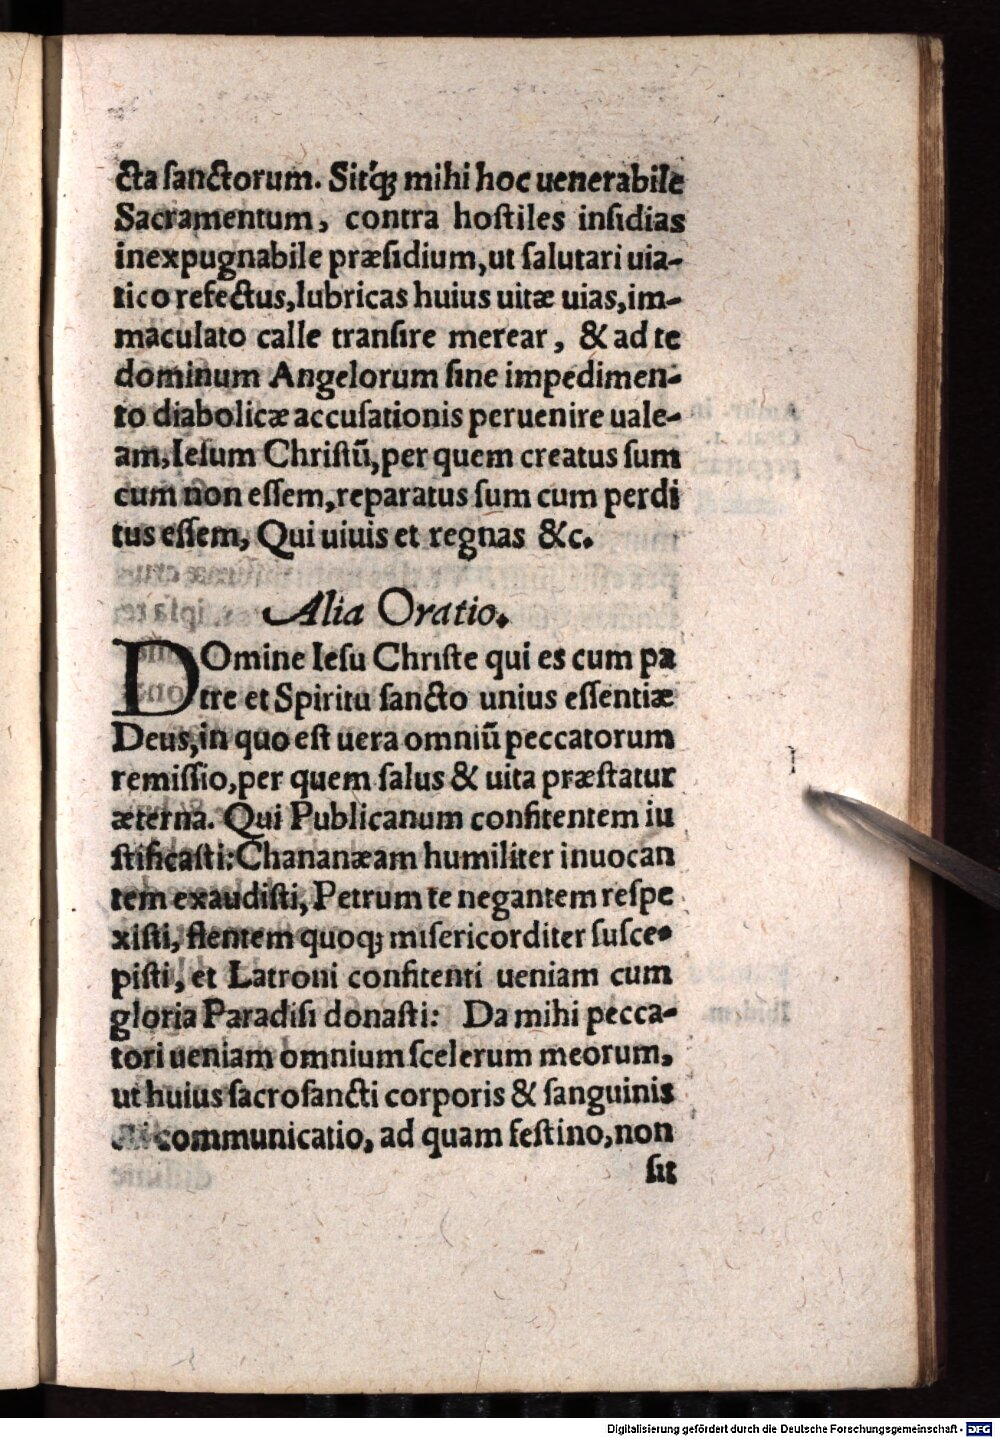 cta ſanctorum. Sitq́ꝫ mihi hoc uenerabile
Sacramentum, contra hoſtiles inſidias
inexpugnabile præſidium, ut ſalutari uia-
tico refectus, lubricas huius uitæ uias, im-
maculato calle tranſire merear, & ad te
dominum Angelorum ſine impedimen-
to diabolicæ accuſationis peruenire uale-
am, Ieſum Chriſtū, per quem creatus ſum
cum non eſſem, reparatus ſum cum perdi
tus eſſem, Qui uiuis et regnas &c.
Alia Oratio.
DOmine Ieſu Chriſte qui es cum pa
tre et Spiritu ſancto unius eſſentiæ
Deus, in quo eſt uera omniū peccatorum
remiſſio, per quem ſalus & uita præſtatur
æterna. Qui Publicanum confitentem iu
ſtificaſti: Chananæam humiliter inuocan
tem exaudiſti, Petrum te negantem reſpe
xiſti, flentem quoqꝫ miſericorditer ſuſce-
piſti, et Latroni confitenti ueniam cum
gloria Paradiſi donaſti: Da mihi pecca-
tori ueniam omnium ſcelerum meorum,
ut huius ſacroſancti corporis & ſanguinis
communicatio, ad quam feſtino, non
ſit
Digitalisierung gefördert durch die Deutsche Forschungsgemeinschaft - DFG